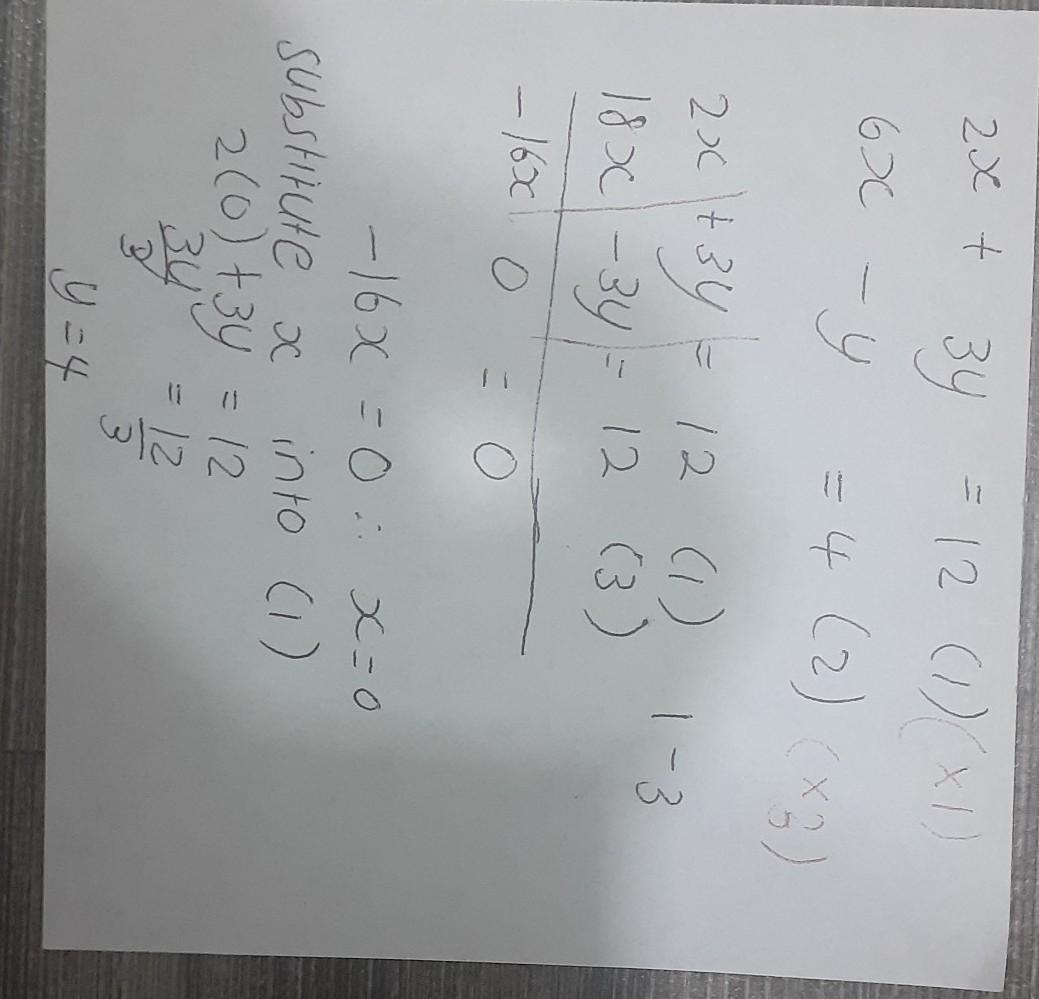 2x + 3y = 12 (1)(×1)
6x - y = 4 (2) (×3)
2x + 3y = 12 (1)
18x - 3y = 12 (3) 1 - 3
-16x 0 = 0
-16x = 0 ∴ x = 0
substitute x into (1)
2(0) + 3y = 12
3y/3 = 12/3
y = 4